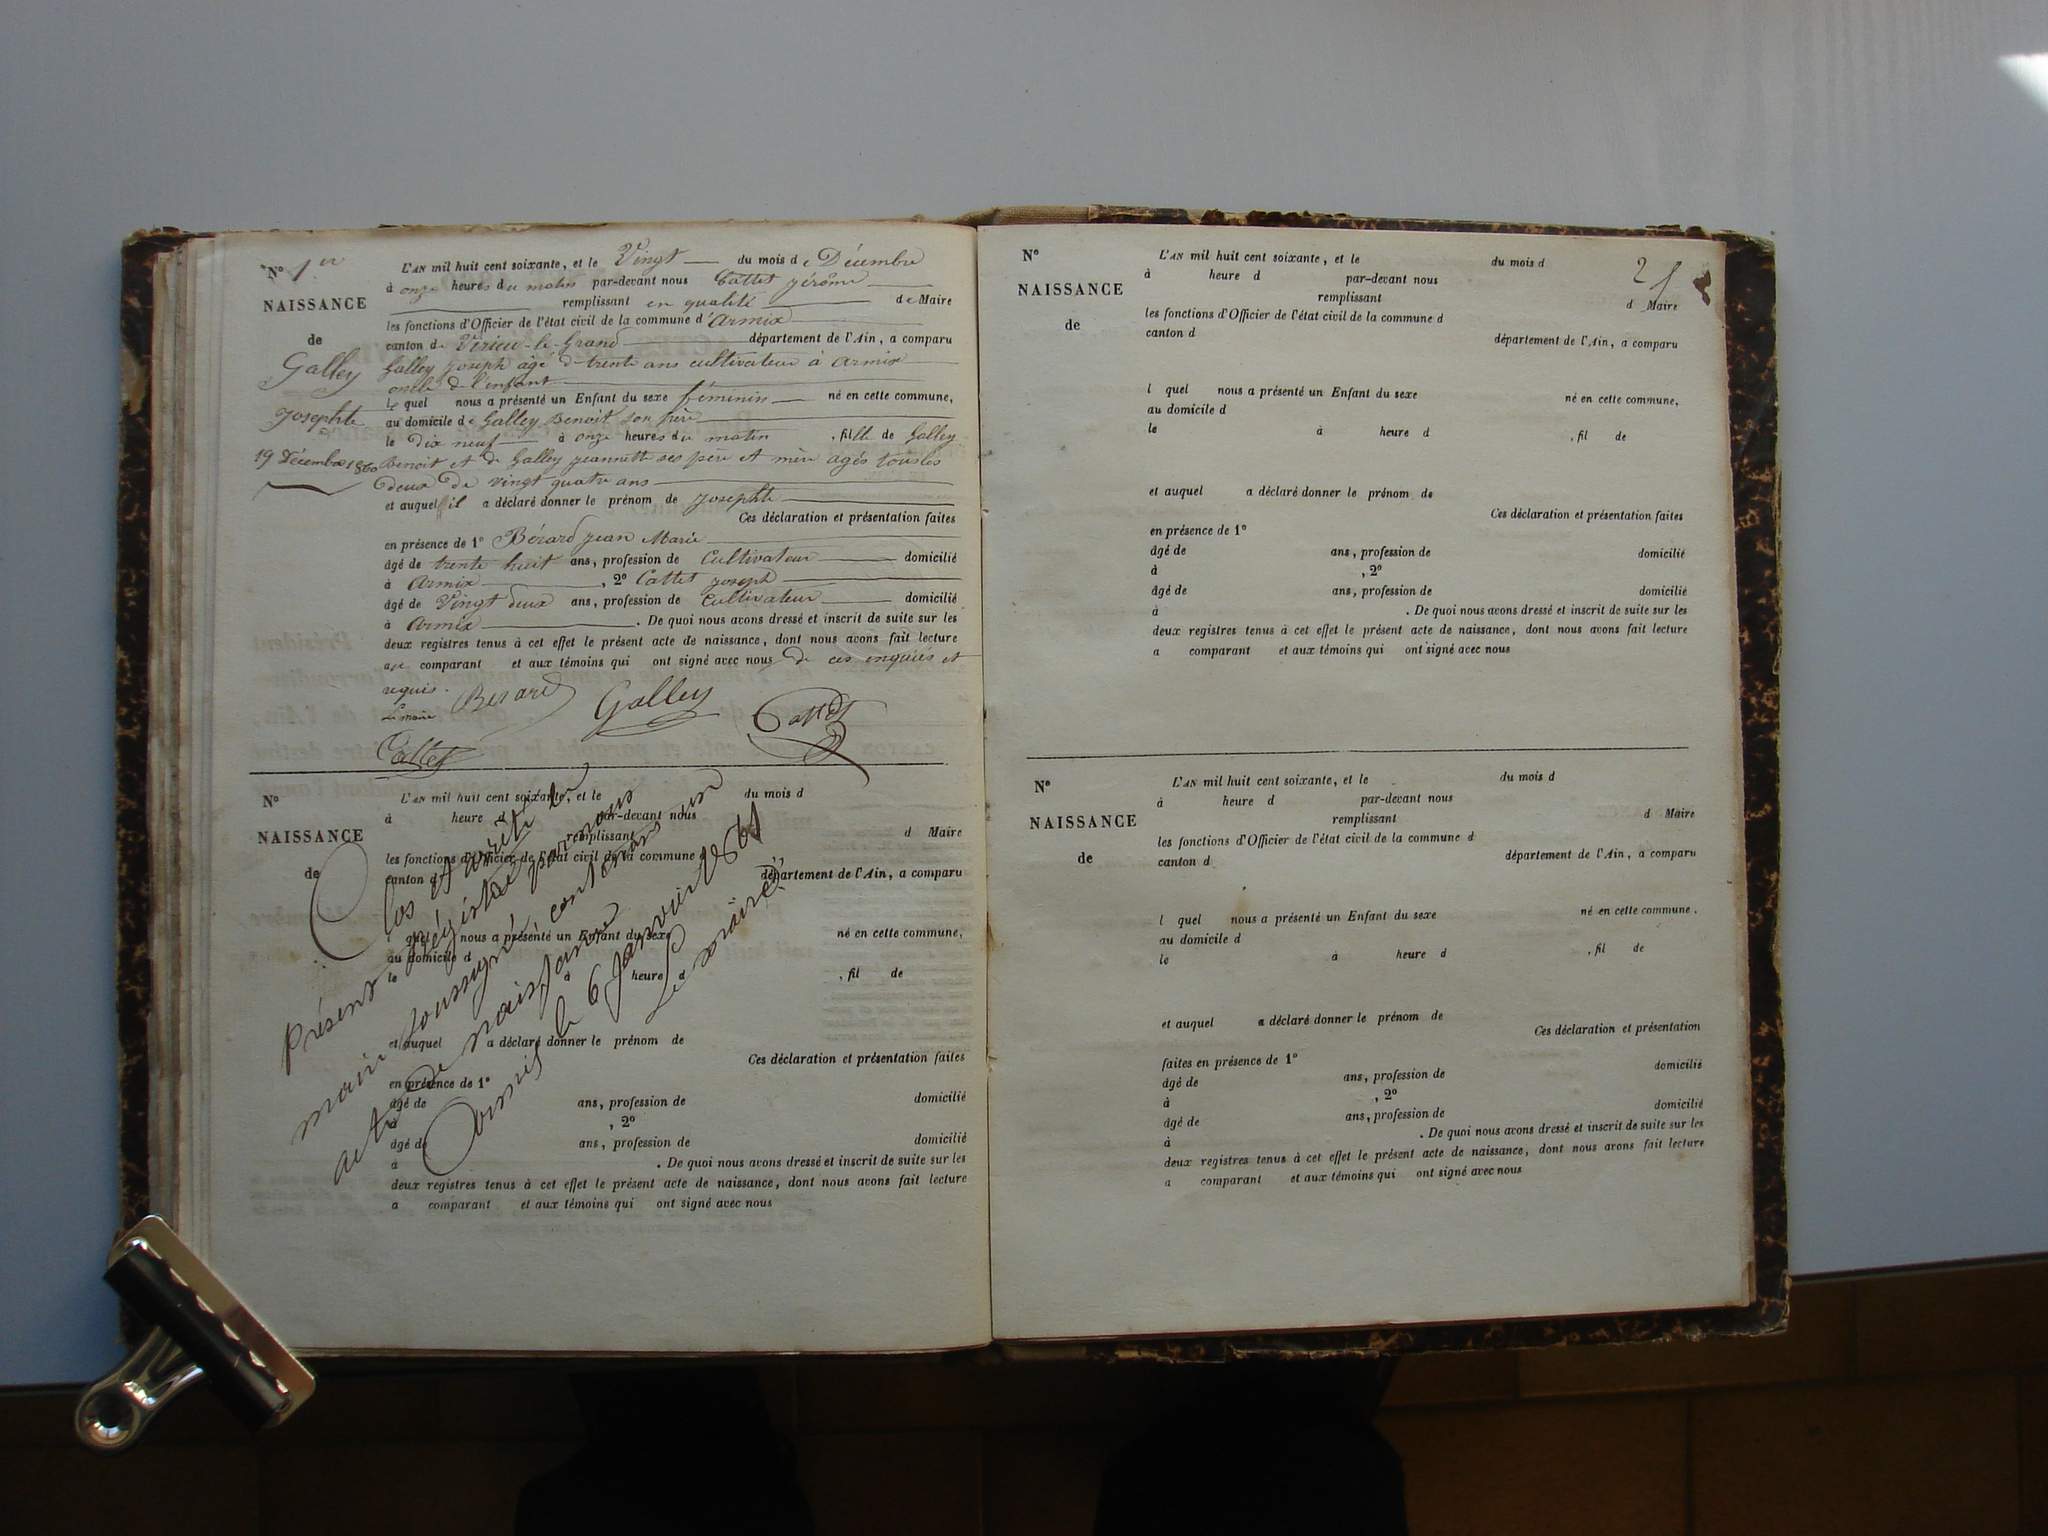 N° 1er
NAISSANCE
de
Galley
Josephte
19 Décembre 1860
L'AN mil huit cent soixante, et le Vingt du mois de Décembre
à onze heures du matin par-devant nous Cattet Jérôme
remplissant en qualité de Maire
les fonctions d'Officier de l'état civil de la commune d'Armix
canton de Virieu-le-Grand département de l'Ain, a comparu
Galley Joseph âgé de trente ans cultivateur à Armix
oncle de l'enfant
lequel nous a présenté un Enfant du sexe féminin né en cette commune,
au domicile de Galley Benoit son père
le dix neuf à onze heures du matin , fille de Galley
Benoit et de Galley Jeannette ses père et mère agés tous les
deux de vingt quatre ans
et auquel il a déclaré donner le prénom de Josephte
Ces déclaration et présentation faites
en présence de 1° Bérard Jean Marie
âgé de trente huit ans, profession de Cultivateur domicilié
à Armix , 2° Cattet Joseph
âgé de Vingt deux ans, profession de Cultivateur domicilié
à Armix . De quoi nous avons dressé et inscrit de suite sur les
deux registres tenus à cet effet le présent acte de naissance, dont nous avons fait lecture
au comparant et aux témoins qui ont signé avec nous de ces enquis et
requis.
Le maire Berard Galley Cattet
Cattet
N°
NAISSANCE
de
L'AN mil huit cent soixante, et le du mois d
à heure d par-devant nous
remplissant d Maire
les fonctions d'Officier de l'état civil de la commune d
canton d département de l'Ain, a comparu
l quel nous a présenté un Enfant du sexe né en cette commune,
au domicile d
le à heure d , fil de
et auquel a déclaré donner le prénom de
Ces déclaration et présentation faites
en présence de 1°
âgé de ans, profession de domicilié
à , 2°
âgé de ans, profession de domicilié
à . De quoi nous avons dressé et inscrit de suite sur les
deux registres tenus à cet effet le présent acte de naissance, dont nous avons fait lecture
a comparant et aux témoins qui ont signé avec nous
Clos et arrêté le
présent régistre par nous
maire soussigné, contenant un
acte de naissance
Armix le 6 Janvier 1861
Le maire
N°
21
NAISSANCE
de
L'AN mil huit cent soixante, et le du mois d
à heure d par-devant nous
remplissant d Maire
les fonctions d'Officier de l'état civil de la commune d
canton d département de l'Ain, a comparu
l quel nous a présenté un Enfant du sexe né en cette commune,
au domicile d
le à heure d , fil de
et auquel a déclaré donner le prénom de
Ces déclaration et présentation faites
en présence de 1°
âgé de ans, profession de domicilié
à , 2°
âgé de ans, profession de domicilié
à . De quoi nous avons dressé et inscrit de suite sur les
deux registres tenus à cet effet le présent acte de naissance, dont nous avons fait lecture
a comparant et aux témoins qui ont signé avec nous
N°
NAISSANCE
de
L'AN mil huit cent soixante, et le du mois d
à heure d par-devant nous
remplissant d Maire
les fonctions d'Officier de l'état civil de la commune d
canton d département de l'Ain, a comparu
l quel nous a présenté un Enfant du sexe né en cette commune.
au domicile d
le à heure d , fil de
et auquel a déclaré donner le prénom de
Ces déclaration et présentation
faites en présence de 1°
âgé de ans, profession de domicilié
à , 2°
âgé de ans, profession de domicilié
à . De quoi nous avons dressé et inscrit de suite sur les
deux registres tenus à cet effet le présent acte de naissance, dont nous avons fait lecture
a comparant et aux témoins qui ont signé avec nous